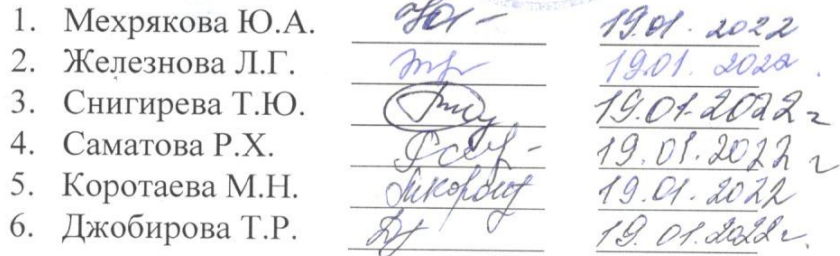 1. Мехрякова Ю.А. 19.01.2022
2. Железнова Л.Г. 19.01.2022
3. Снигирева Т.Ю. 19.01.2022 г
4. Саматова Р.Х. 19.01.2022 г
5. Коротаева М.Н. 19.01.2022
6. Джобирова Т.Р. 19.01.2022 г.